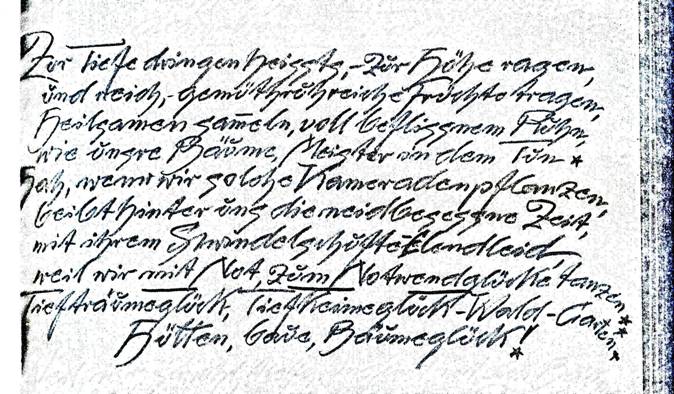 Zur Tiefe dringen heissts, - Zur Höhe ragen,
und reich, - gemüthrühreiche Früchte tragen,
Heilsamen sam̅eln, voll beflissnem Mühn,
wie unsre Bäume, Meister in dem Tun *
Hah, wenn wir solche Kameraden pflanzen,
bleibt hinter uns die neidbesessne Zeit,
mit ihrem Schwindelschufte Elendleid,
weil wir mit Not, zum Notwendglücke tanzen, **
Tiefträumeglück, Tiefkeimeglück-Wald-Garten *
Hütten, Gaue, Bäumeglück! *